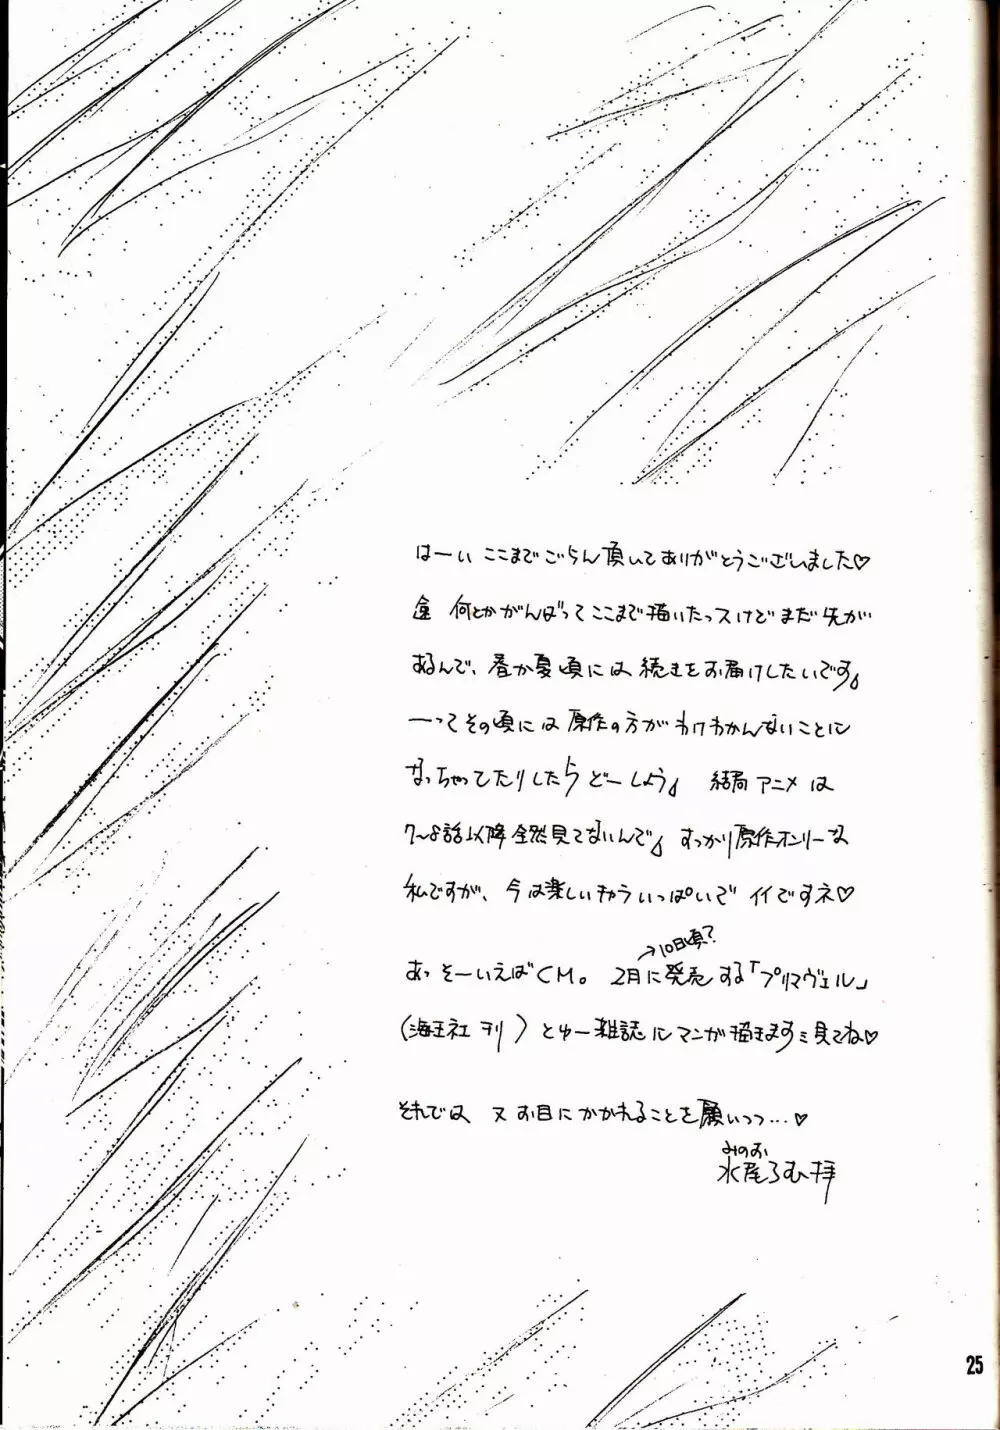 はーい ここまでごらん頂いてありがとうございました♡
何とかがんばってここまで描いたっスけどまだ先が
あるんで、春か夏頃には続きをお届けしたいです。
ーってその頃には原作の方がわけわかんないことに
なっちゃってたりしたらどーしよう。 結局アニメは
7〜8話以降全然見てないんで。すっかり原作オンリーな
私ですが、今は楽しいキャラいっぱいでイイですネ♡
→10日頃?
あっそーいえばCM。 2月に発売する「プリマヴェル」
(海王社ヨリ)とゆー雑誌にマンガ描きます 見てね♡
それでは 又お目にかかれることを願いつつ…♡
みのお
水尾ろむ拝
25